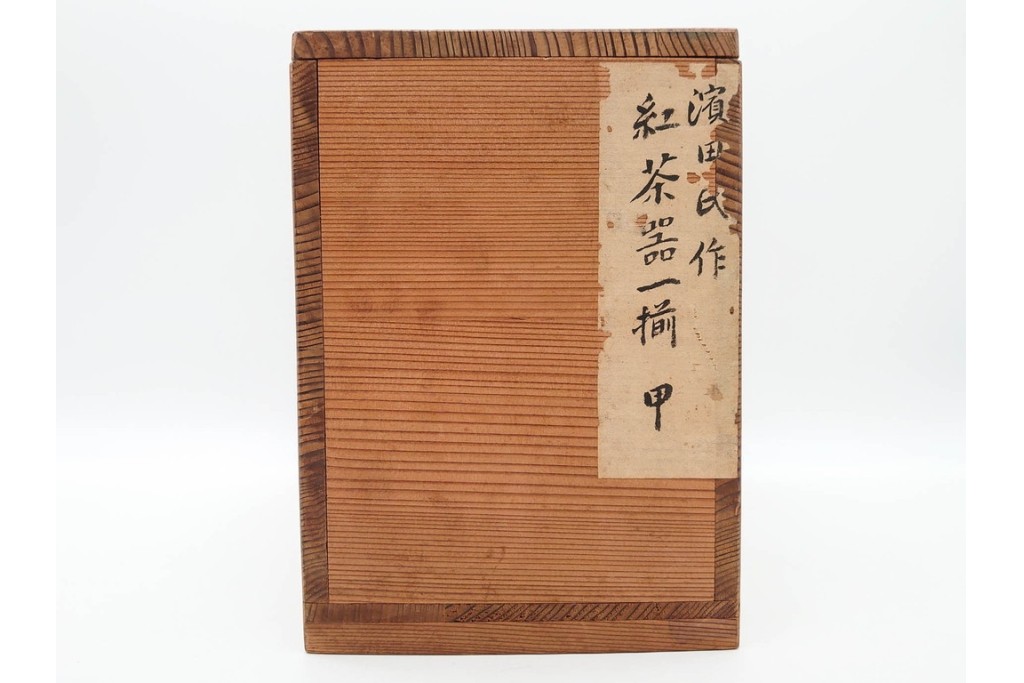 濱田氏作
紅茶器一揃 甲